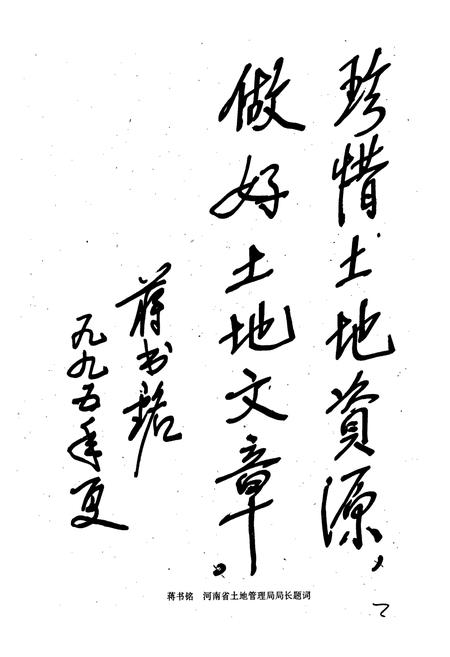 珍惜土地資源，
做好土地文章。
蒋书铭
一九九五年夏
蒋书铭 河南省土地管理局局长题词